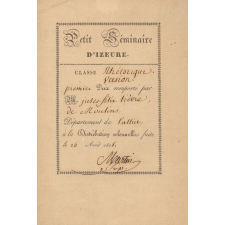 Petit Séminaire
D'IZEURE.
CLASSE Rhétorique
Version
premier Prix remporté par
M. jules félix
de Moulins
Département de l'allier
à la Distribution solennelle faite
le 26 Août
Martin